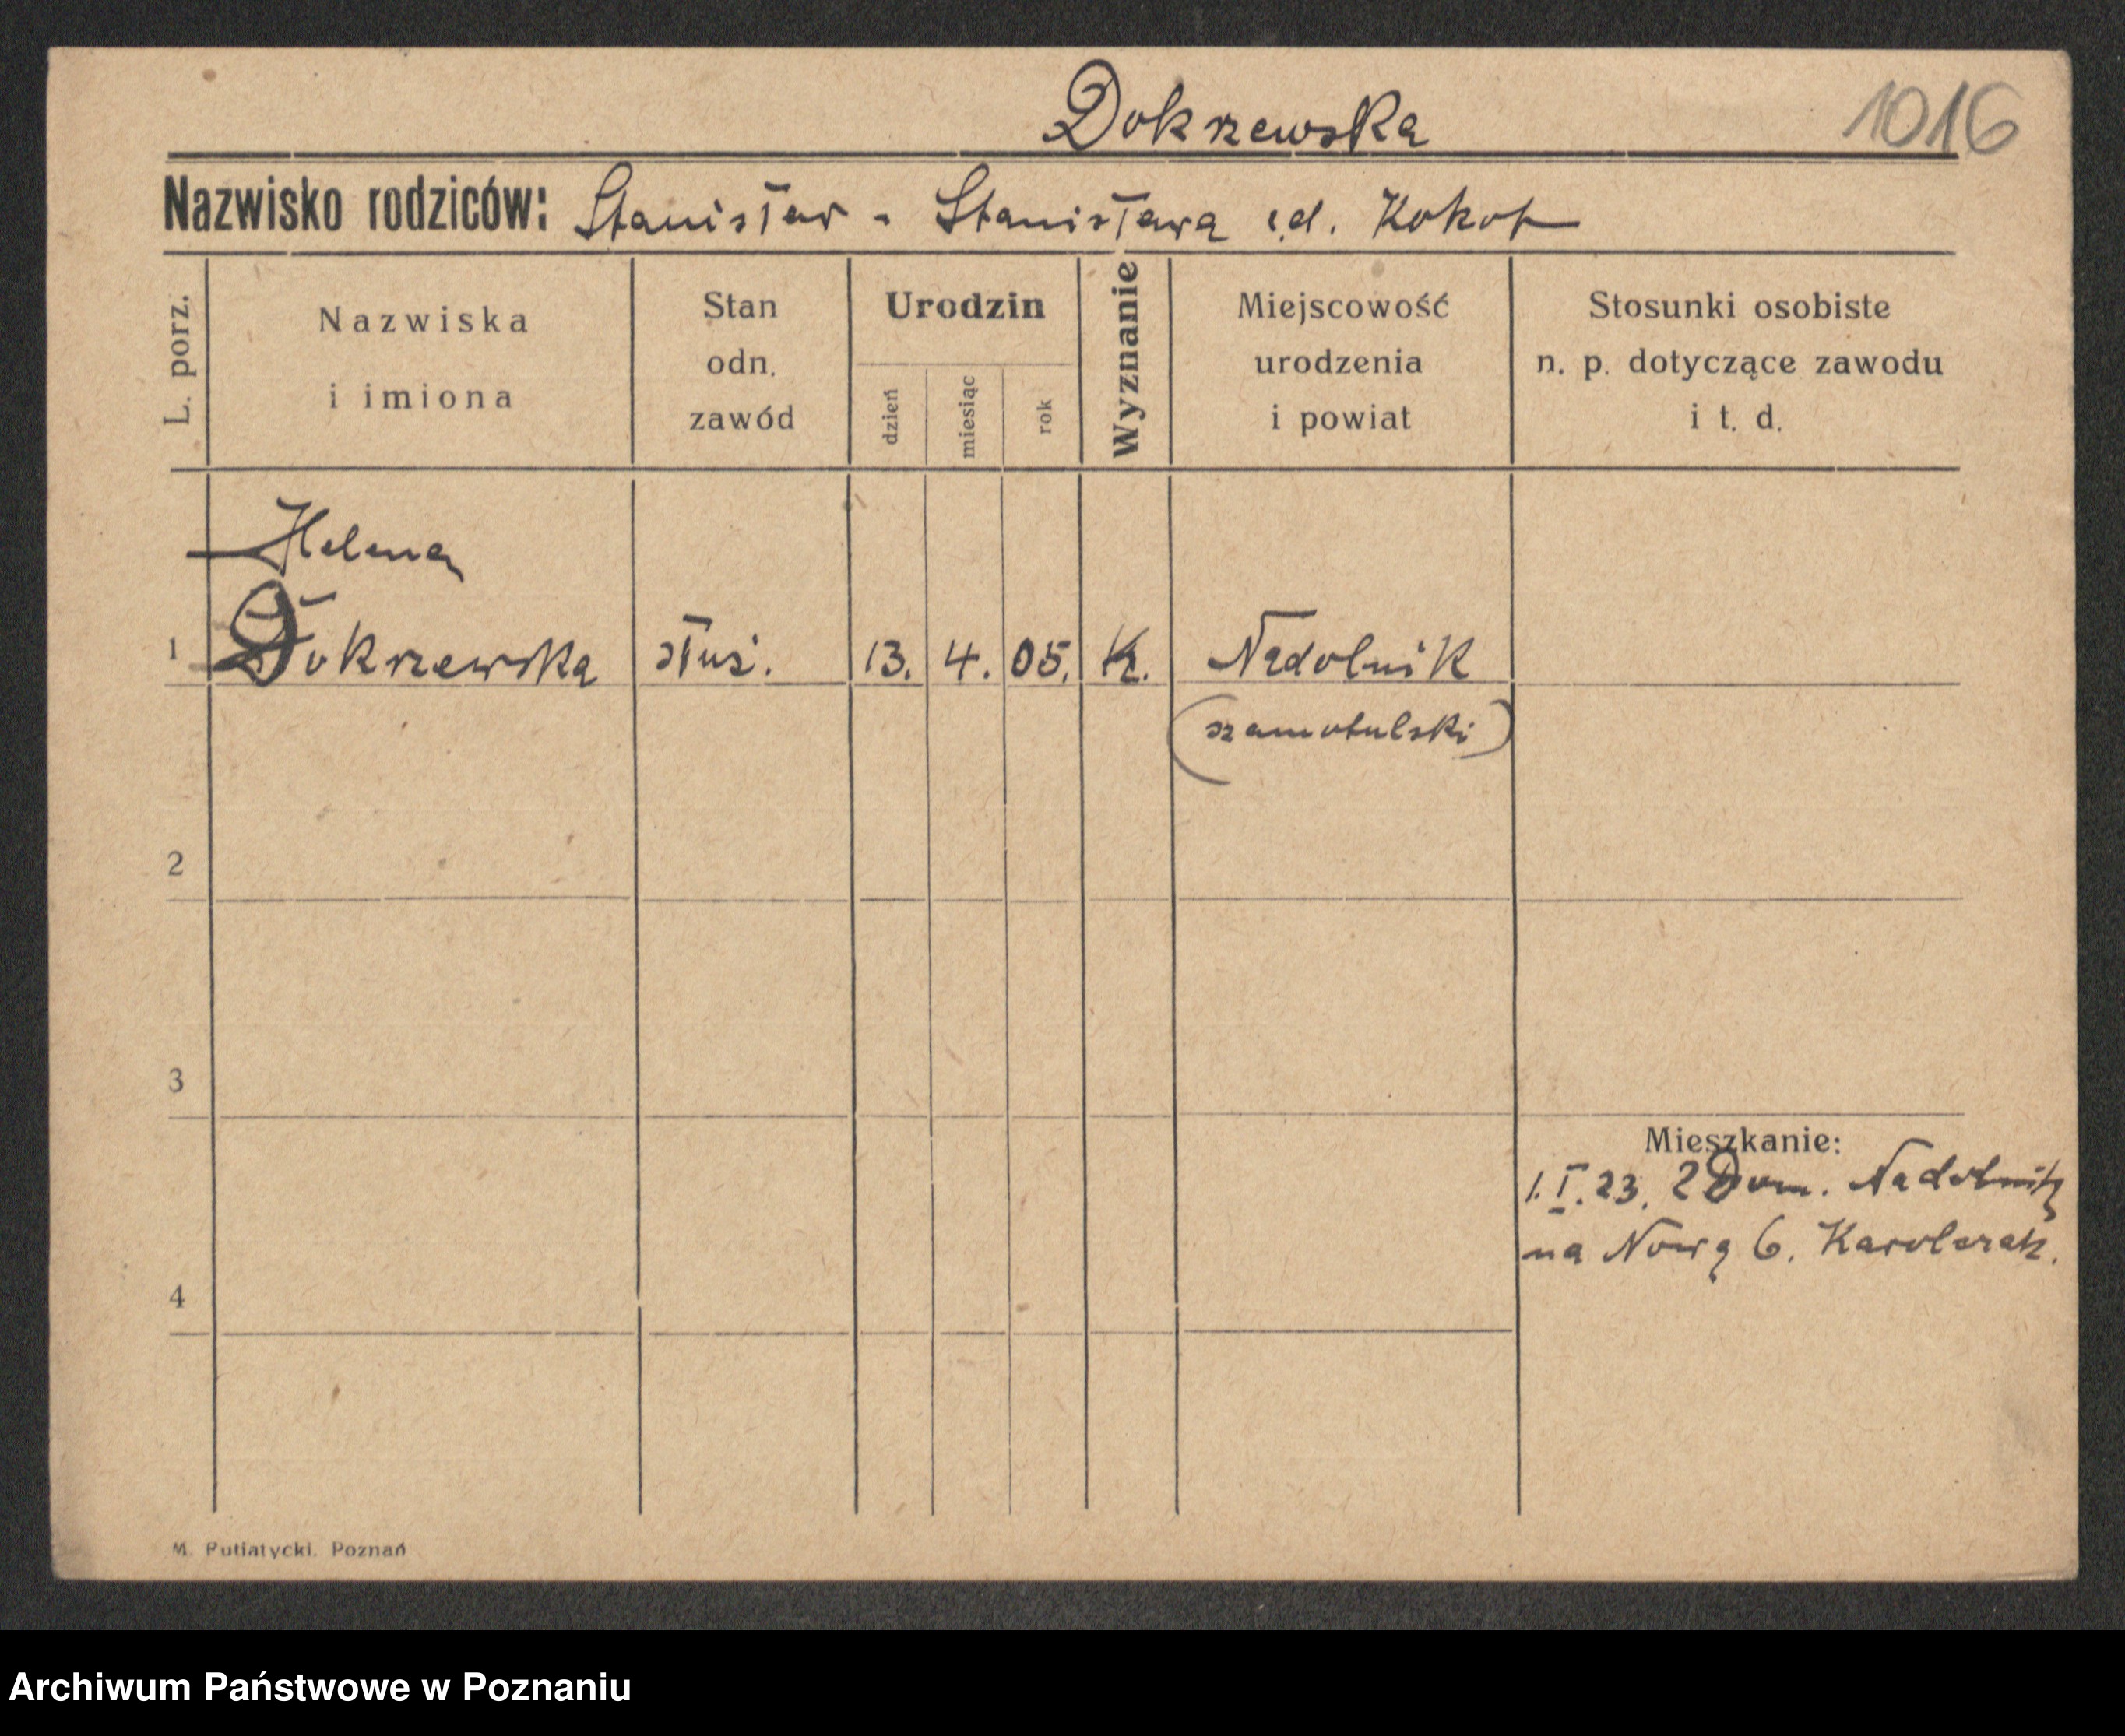 Dokrzewska 1016
Nazwisko rodziców: Stanisław - Stanisława z.d. Kokot
L. porz.
Nazwiska
i imiona
Stan
odn.
zawód
Urodzin
dzień
miesiąc
rok
Wyznanie
Miejscowość
urodzenia
i powiat
Stosunki osobiste
n. p. dotyczące zawodu
i t. d.
Helena
1 Dokrzewska służ. 13. 4. 05. k. Nadolnik
(szamotulski)
2
3
Mieszkanie:
1.I.23. z Dom. Nadolnik
na Nową 6. Karolczak.
4
M. Putiatycki. Poznań
Archiwum Państwowe w Poznaniu